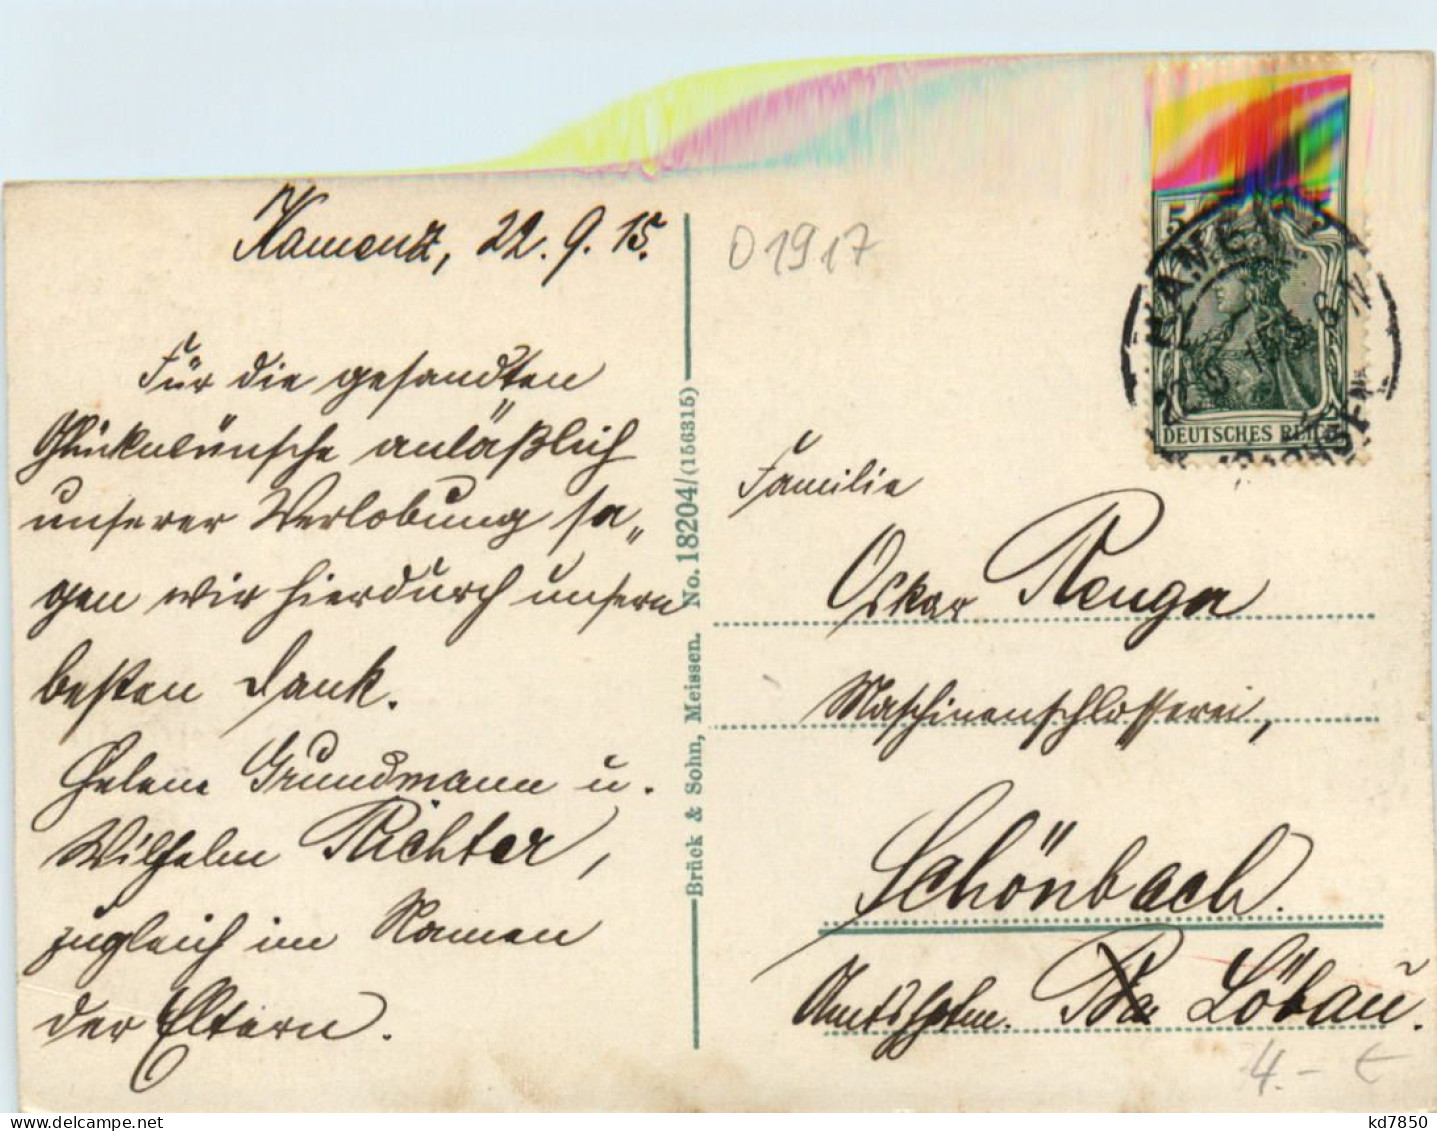 Kamenz, 22. 9. 15.
Für die gesandten
Glückwünsche anläßlich
unserer Verlobung sa„
gen wir hierdurch unsern
besten Dank.
Helene Grundmann u.
Wilhelm Richter,
zugleich im Namen
der Eltern.
Brück & Sohn, Meissen. No. 18204/(156315)
01917
5
KAMENZ
22.9.15.
DEUTSCHES REICH
Familie
Oskar
Maschinenschlosserei,
Schönbach.
Amtshptm. Löbau.
4.- €
kd7850